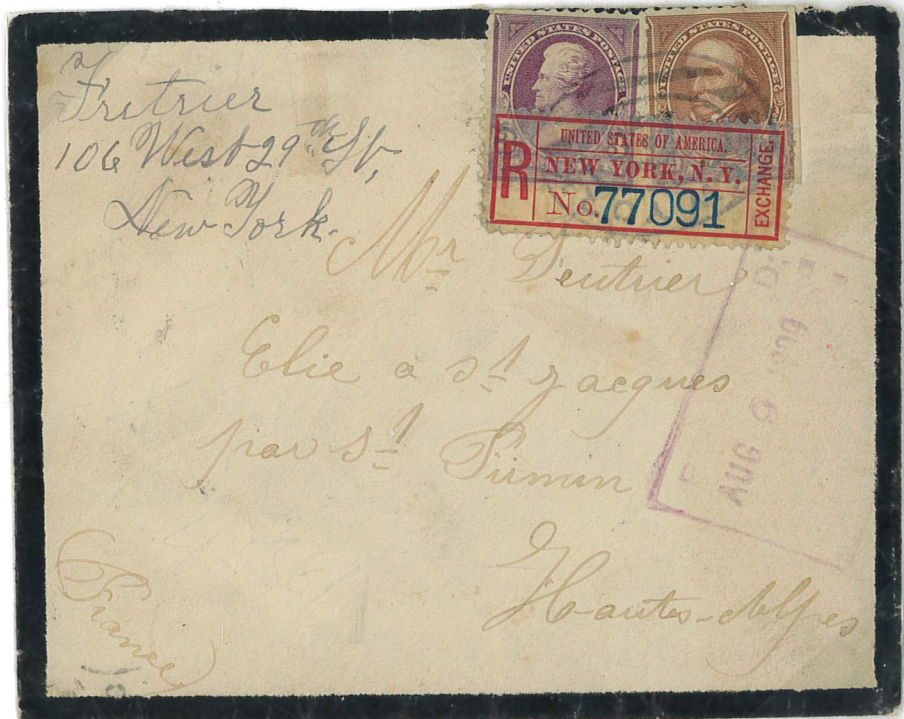 Fretrier
106 West 29th St,
New York.
UNITED STATES POSTAGE
UNITED STATES POSTAGE
R
UNITED STATES OF AMERICA.
NEW YORK, N.Y.
No. 77091
EXCHANGE.
Mr
Elie a st Jacques
par st Firmin
Hautes-Alpes
France
AUG 9